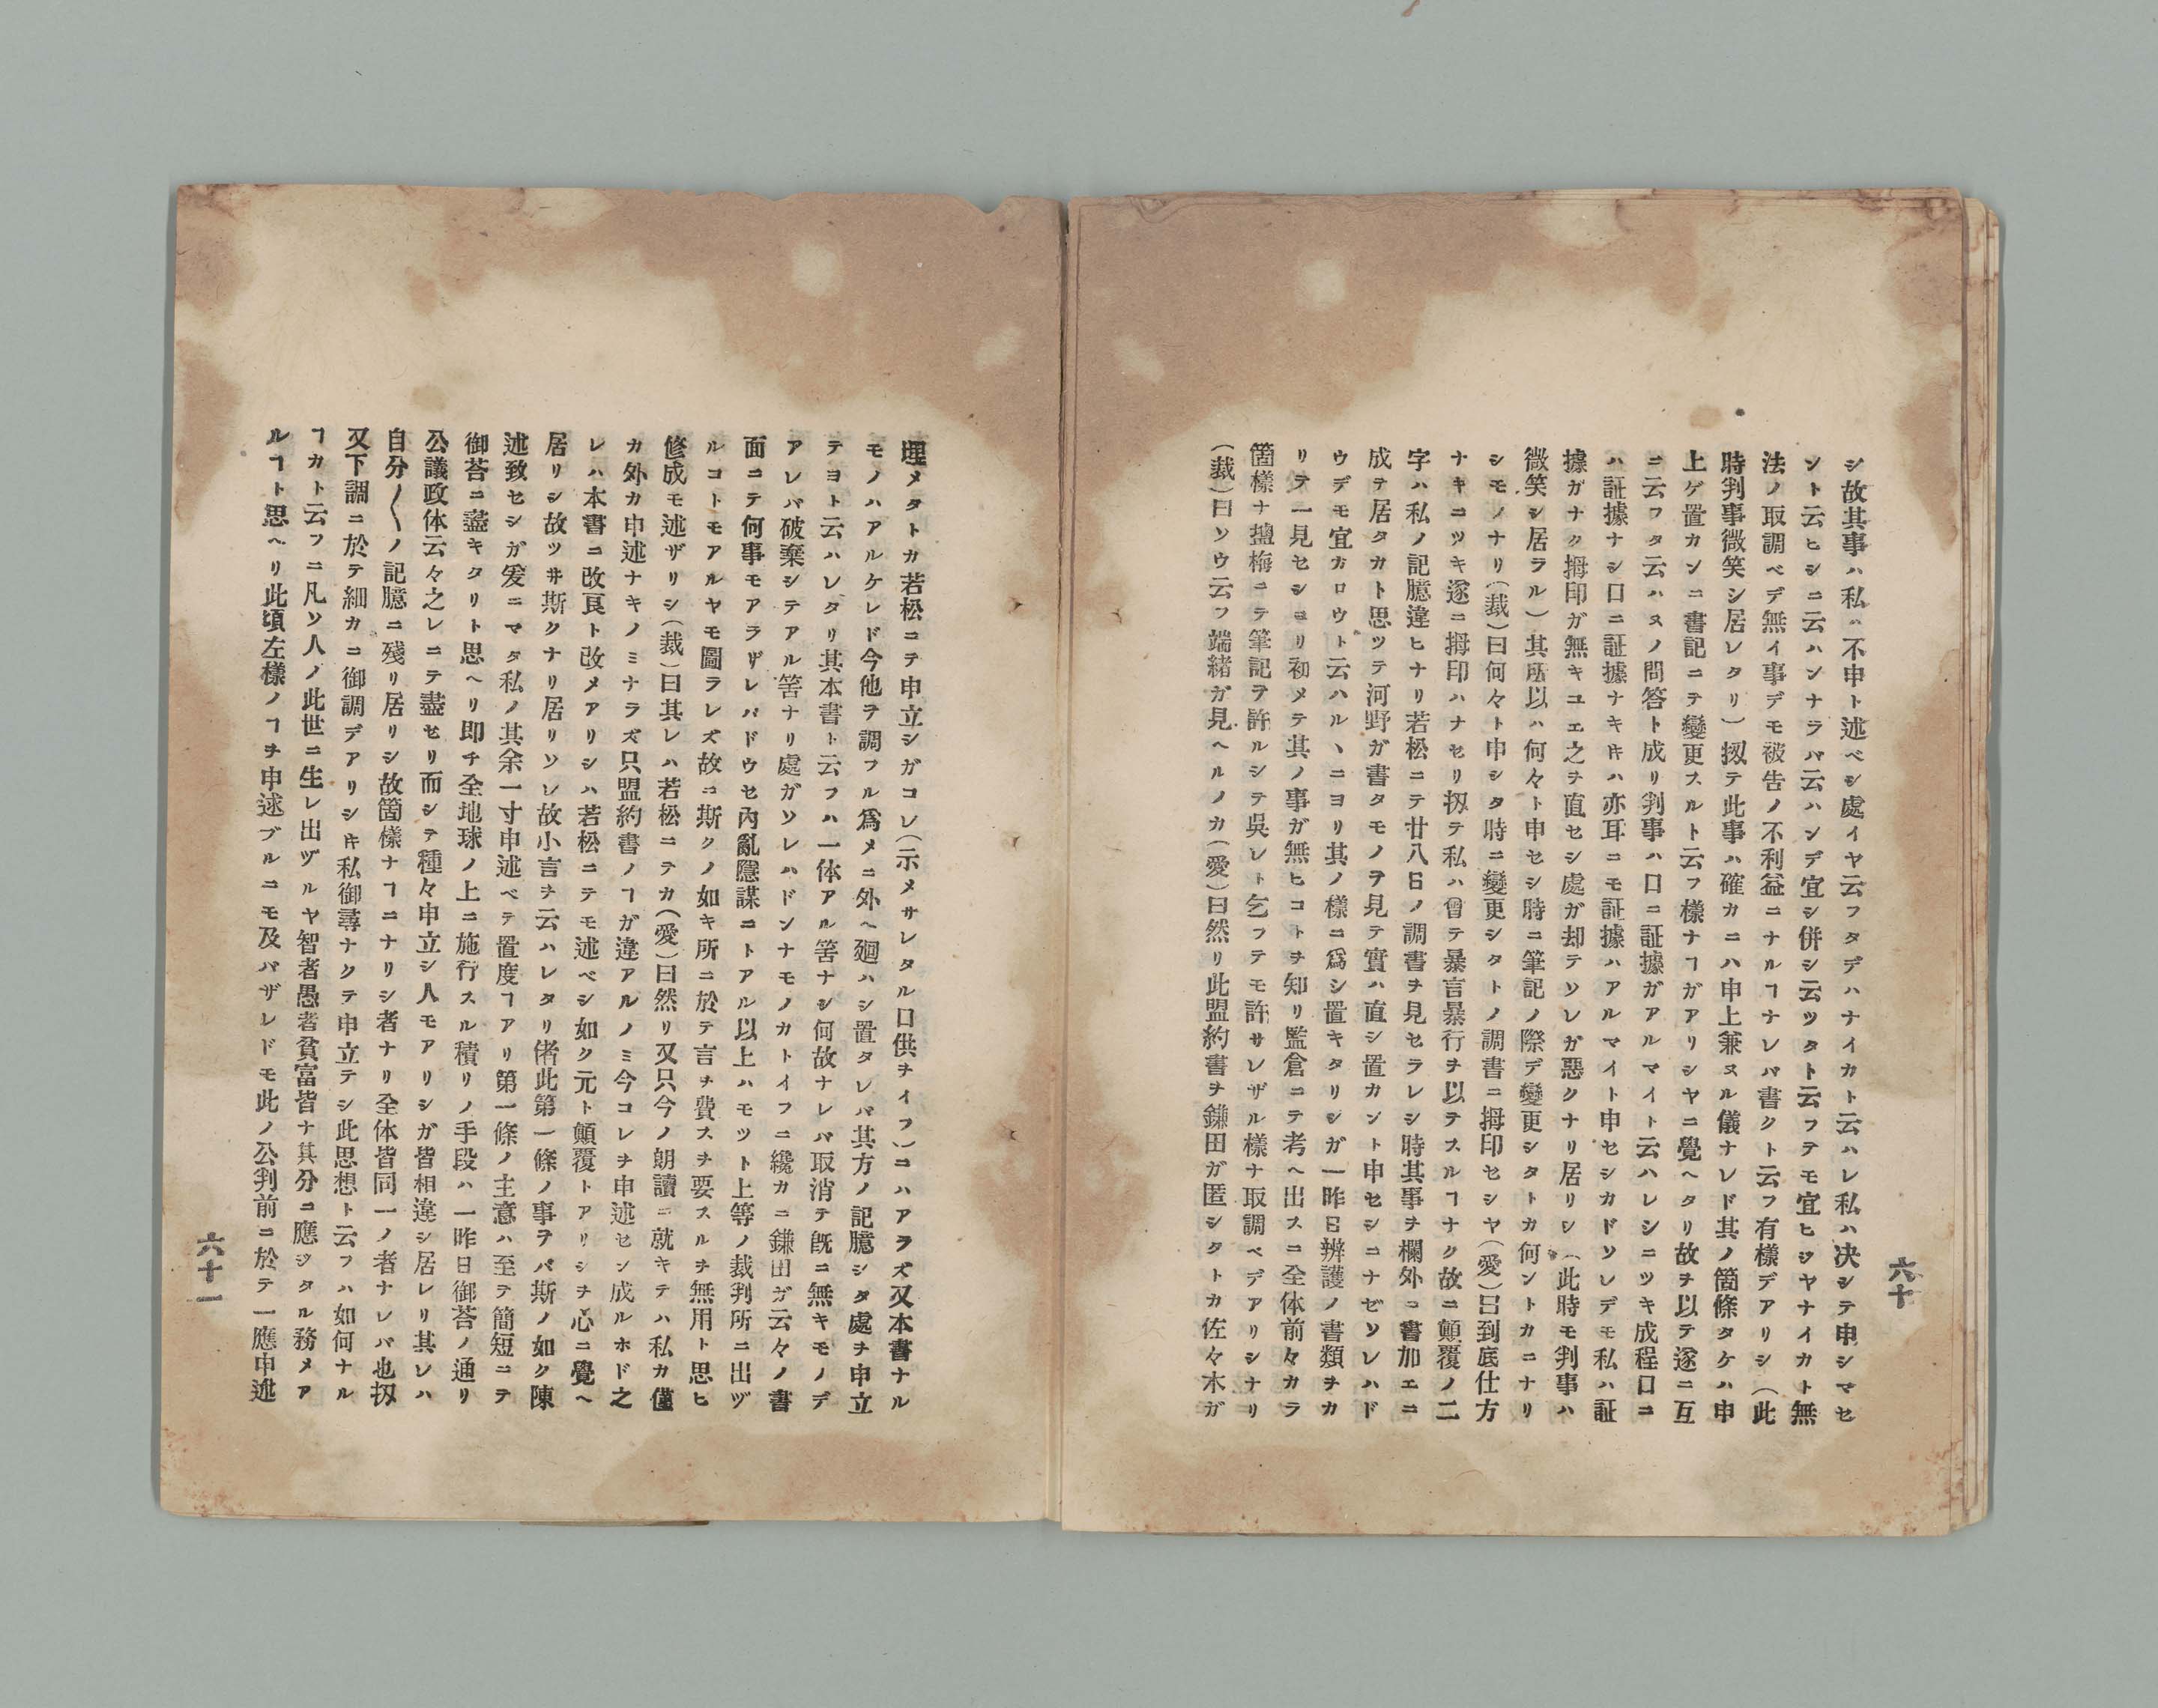 六十
シ故其事ハ私ハ不申ト述ベシ處イヤ云フタデハナイカト云ハレ私ハ决シテ申シマセ
ント云ヒシニ云ハンナラバ云ハンデ宜シ併シ云ツタト云フテモ宜ヒジヤナイカト無
法ノ取調ベデ無イ事デモ被告ノ不利益ニナルヿナレバ書クト云フ有樣デアリシ（此
時判事微笑シ居レタリ）扨テ此事ハ確カニハ申上兼ヌル儀ナレド其ノ箇條タケハ申
上ゲ置カンニ書記ニテ變更スルト云フ樣ナヿガアリシヤニ覺ヘタリ故ヲ以テ遂ニ互
ニ云フタ云ハヌノ問答ト成リ判事ハ口ニ証據ガアルマイト云ハレシニツキ成程口ニ
ハ証據ナシ口ニ証據ナキ𪜈ハ亦耳ニモ証據ハアルマイト申セシカドソレデモ私ハ証
據ガナク拇印ガ無キユエ之ヲ直セシ處ガ却テソレガ惡クナリ居リシ（此時モ判事ハ
微笑シ居ラル）其所以ハ何々ト申セシ時ニ筆記ノ際デ變更シタトカ何ントカニナリ
シモノナリ（裁）曰何々ト申シタ時ニ變更シタトノ調書ニ拇印セシヤ（愛）曰到底仕方
ナキニツキ遂ニ拇印ハナセリ扨テ私ハ曾テ暴言暴行ヲ以テスルヿナク故ニ顛覆ノ二
字ハ私ノ記臆違ヒナリ若松ニテ廿八日ノ調書ヲ見セラレシ時其事ヲ欄外ニ書加エニ
成テ居タカト思ツテ河野ガ書タモノヲ見テ實ハ直シ置カント申セシニナゼソレハド
ウデモ宜ガロウト云ハルヽニヨリ其ノ樣ニ爲シ置キタリシガ一昨日辨護ノ書類ヲカ
リテ一見セショリ初メテ其ノ事ガ無ヒコトヲ知リ監倉ニテ考ヘ出スニ全体前々カラ
箇樣ナ摥梅ニテ筆記ヲ許ルシテ呉レト乞フテモ許サレザル樣ナ取調ベデアリシナリ
（裁）曰ソウ云フ端緒ガ見ヘルノカ（愛）曰然リ此盟約書ヲ鎌田ガ匿シタトカ佐々木ガ
埋メタトカ若松ニテ申立シガコレ（示メサレタル口供ヲイフ）ニハアラズ又本書ナル
モノハアルケレド今他ヲ調フル爲メニ外ヘ廻ハシ置タレバ其方ノ記臆シタ處ヲ申立
テヨト云ハレタリ其本書ト云フハ一体アル筈ナシ何故ナレバ取消テ旣ニ無キモノデ
アレバ破棄シテアル筈ナリ處ガソレハドンナモノカトイフニ纔カニ鎌田ガ云々ノ書
面ニテ何事モアラザレバドウセ內亂隱謀ニトアル以上ハモット上等ノ裁判所ニ出ヅ
ルコトモアルヤモ圖ラレズ故ニ斯クノ如キ所ニ於テ言ヲ費スヲ要スルヲ無用ト思ヒ
修成モ述ザリシ（裁）曰其レハ若松ニテカ（愛）曰然リ又只今ノ朗讀ニ就キテハ私カ僅
カ外カ申述ナキノミナラズ只盟約書ノヿガ違アルノミ今コレヲ申述セン成ルホド之
レハ本書ニ改良ト改メアリシハ若松ニテモ述ベシ如ク元ト顛覆トアリシヲ心ニ覺ヘ
居リシ故ツヰ斯クナリ居リソレ故小言ヲ云ハレタリ偖此第一條ノ事ヲバ斯ノ如ク陳
述致セシガ爰ニマタ私ノ其余一寸申述ベテ置度ヿアリ第一條ノ主意ハ至テ簡短ニテ
御荅ニ盡キタリト思ヘリ即チ全地球ノ上ニ施行スル積リノ手段ハ一昨日御荅ノ通リ
公議政体云々之レニテ盡セリ而シテ種々申立シ人モアリシガ皆相違シ居レリ其レハ
自分〱ノ記臆ニ殘リ居リシ故箇樣ナヿニナリシ者ナリ全体皆同一ノ者ナレバ也扨
又下調ニ於テ細カニ御調デアリシ𪜈私御尋ナクテ申立テシ此思想ト云フハ如何ナル
ヿカト云フニ凡ソ人ノ此世ニ生レ出ヅルヤ智者愚者貧富皆ナ其分ニ應ジタル務メア
ルヿト思ヘリ此頃左樣ノヿヲ申述ブルニモ及バザレドモ此ノ公判前ニ於テ一應申述
六十一